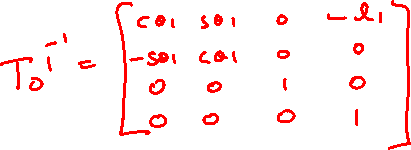 T₀¹⁻¹ = [ cθ₁ sθ₁ 0 -l₁
-sθ₁ cθ₁ 0 0
0 0 1 0
0 0 0 1 ]